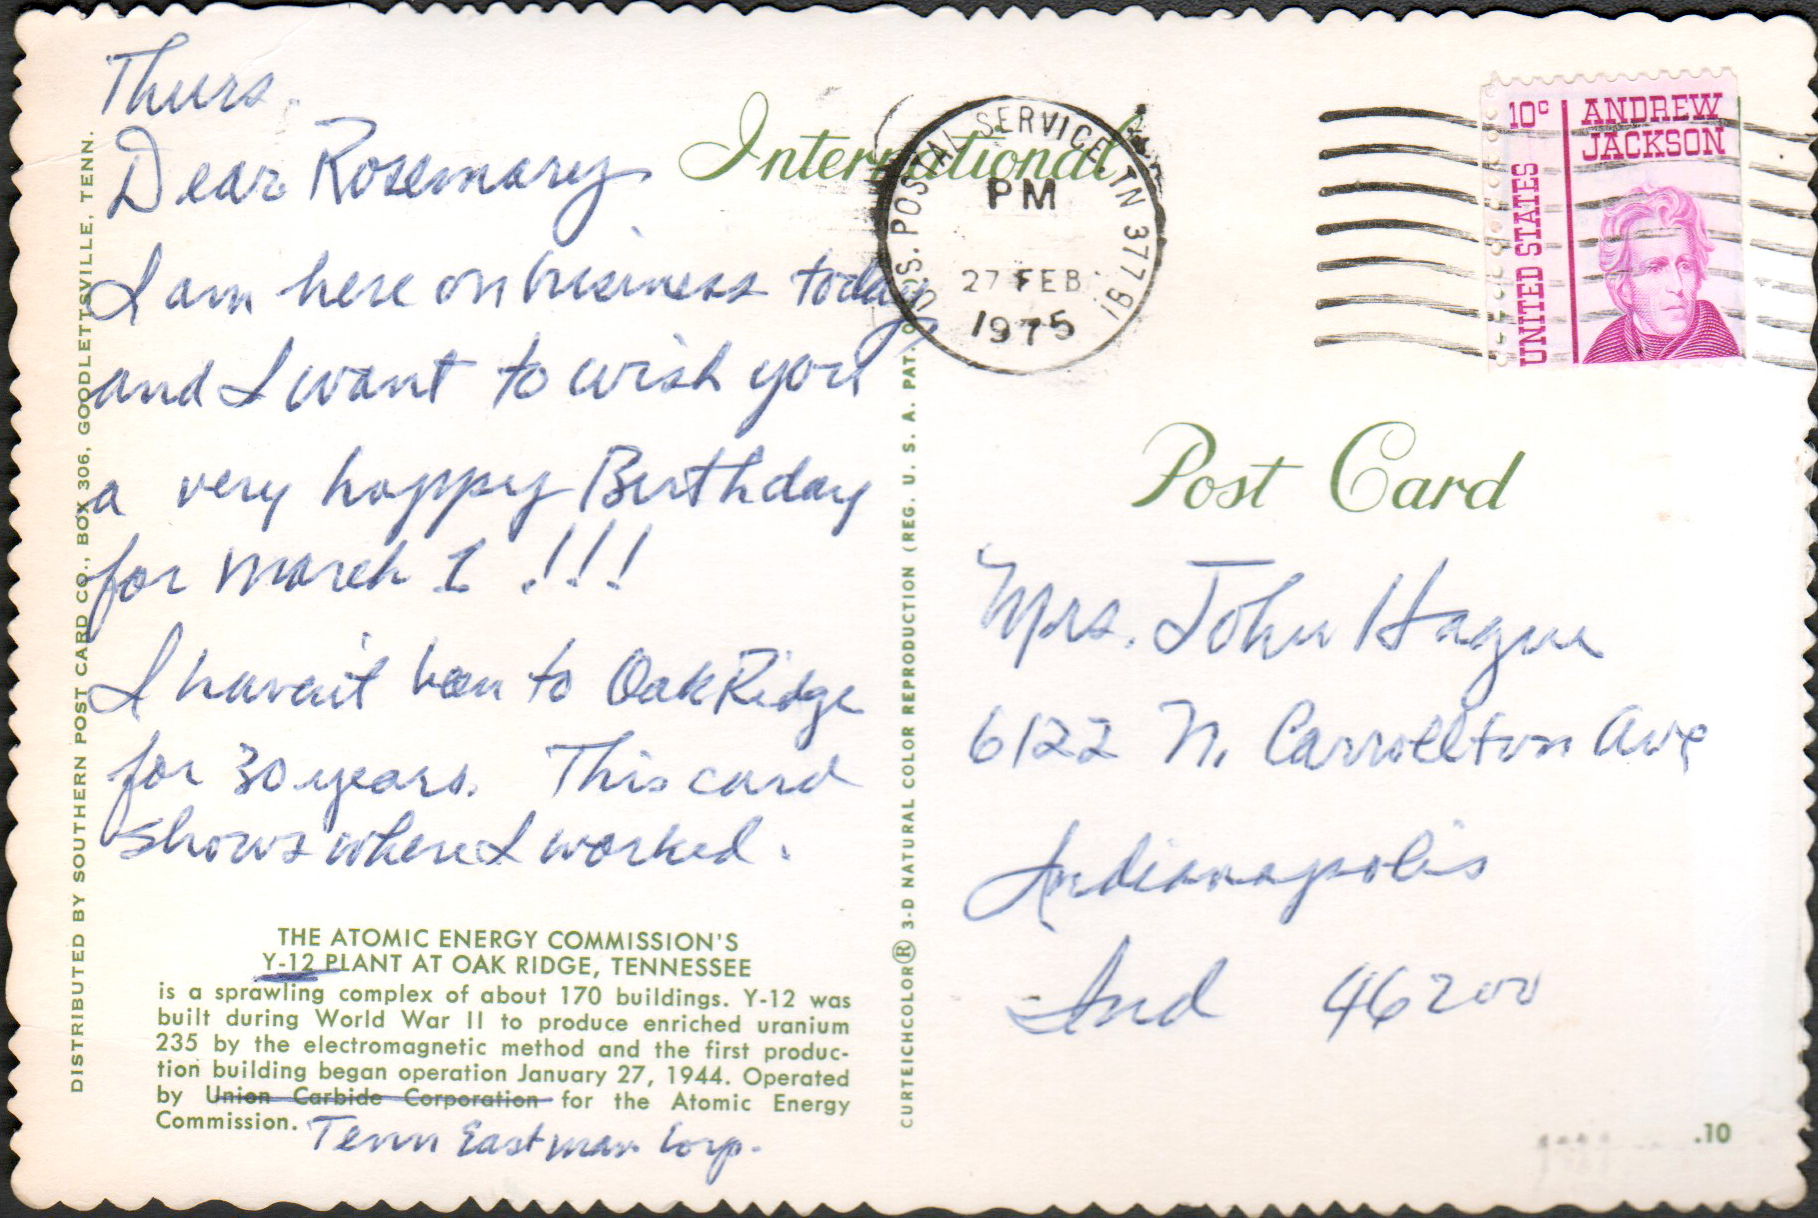 Thurs.
Dear Rosemary
I am here on business today
and I want to wish you
a very happy Birthday
for March 1 !!!
I haven't been to Oak Ridge
for 30 years. This card
shows where I worked.
THE ATOMIC ENERGY COMMISSION'S
Y-12 PLANT AT OAK RIDGE, TENNESSEE
is a sprawling complex of about 170 buildings. Y-12 was
built during World War II to produce enriched uranium
235 by the electromagnetic method and the first produc-
tion building began operation January 27, 1944. Operated
by Union Carbide Corporation for the Atomic Energy
Commission.
Tenn Eastman Corp.
DISTRIBUTED BY SOUTHERN POST CARD CO., BOX 306, GOODLETTSVILLE, TENN.
CURTEICHCOLOR® 3-D NATURAL COLOR REPRODUCTION (REG. U. S. A. PAT.
International
U.S. POSTAL SERVICE TN 377
PM
27 FEB
1975
10c
ANDREW
JACKSON
UNITED STATES
Post Card
Mrs. John Hague
6122 N. Carrollton Ave
Indianapolis
Ind 46200
.10